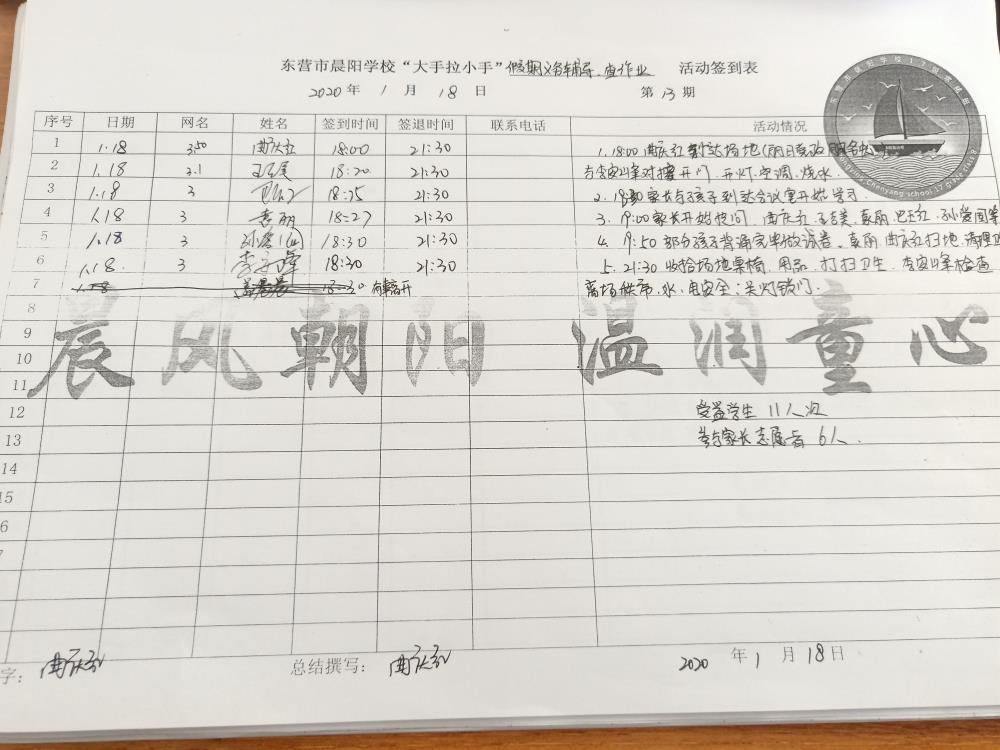 东营市晨阳学校“大手拉小手”假期义务辅导、查作业 活动签到表
2020 年 1 月 18 日 第 13 期
序号 日期 网名 姓名 签到时间 签退时间 联系电话 活动情况
1 1.18 3.50 曲庆红 18:00 21:30
2 1.18 3.1 18:20 21:30
3 1.18 3 18:25 21:30
4 1.18 3 袁丽 18:27 21:30
5 1.18 3 18:30 21:30
6 1.18 3 李安峰 18:30 21:30
7 1.18 18:30 有事离开
8
9
10
11
12
13
14
15
1. 18:00 曲庆红到达场地
与李安峰对接开门、开灯、空调、烧水
2. 18:30 家长与孩子到达会议室开始学习
3. 19:00 家长开始提问
4. 19:50 部分孩子背诵完毕做试卷。袁丽、曲庆红扫地、清理
5. 21:30 收拾场地桌椅、用品、打扫卫生。李安峰检查
离场秩序、水、电安全;关灯锁门.
晨风朝阳 温润童心
受益学生 11人次
参与家长志愿者 6人.
字: 曲庆红 总结撰写: 曲庆红 2020 年 1 月 18 日